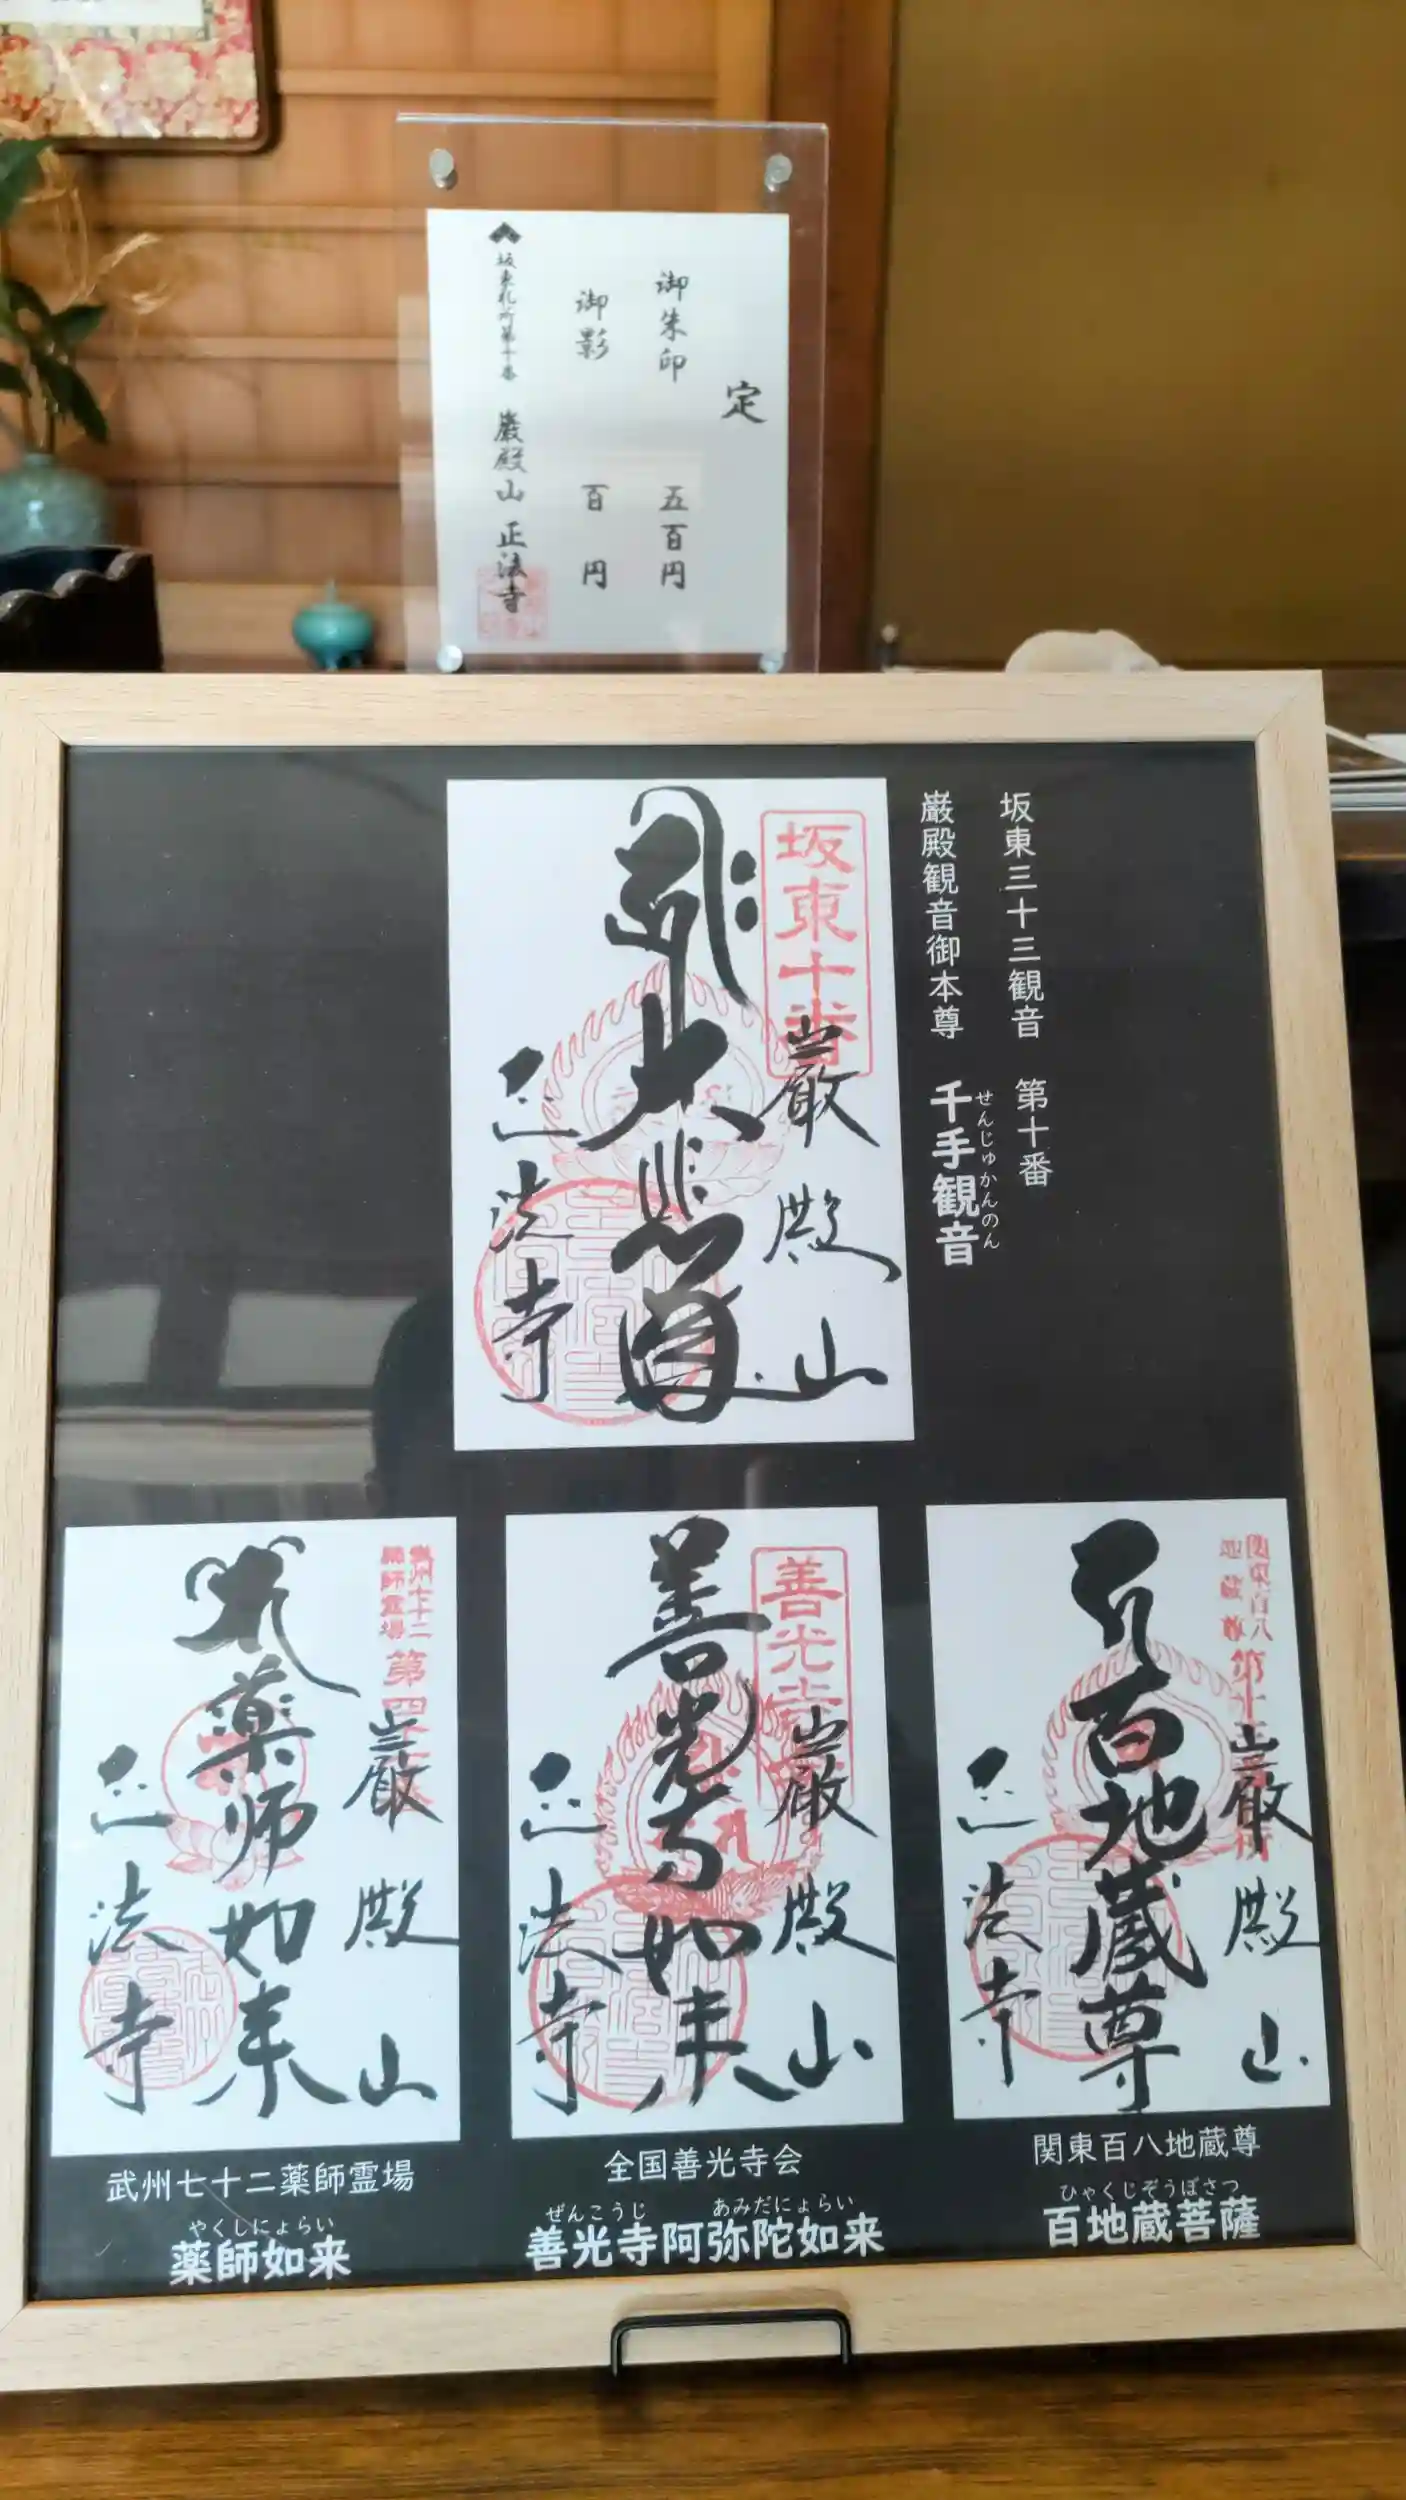 定
御朱印 五百円
御影 百円
坂東札所第十番 巌殿山 正法寺
坂東三十三観音 第十番
巌殿観音御本尊 千手観音
せんじゅかんのん
坂東十番
巌殿山
大悲尊
正法寺
関東百八
地蔵尊
巌殿山
百地蔵尊
正法寺
関東百八地蔵尊
ひゃくじぞうぼさつ
百地蔵菩薩
善光寺
巌殿山
善光寺如来
正法寺
全国善光寺会
ぜんこうじ あみだにょらい
善光寺阿弥陀如来
武州七十二
薬師霊場
第四
巌殿山
薬師如来
正法寺
武州七十二薬師霊場
やくしにょらい
薬師如来